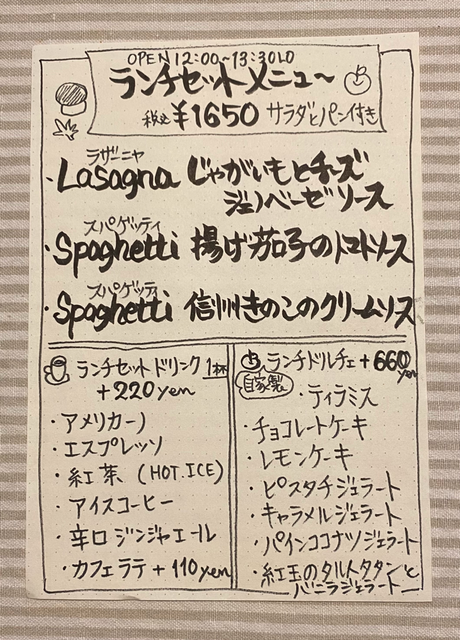 OPEN 12:00~13:30LO
ランチセットメニュ～
税込 ¥1650 サラダとパン付き
ラザーニャ
・Lasagna じゃがいもとチーズ
ジェノベーゼソース
スパゲッティ
・Spaghetti 揚げ茄子のトマトソース
スパゲッティ
・Spaghetti 信州きのこのクリームソース
ランチセットドリンク 1杯
+220yen
・アメリカーノ
・エスプレッソ
・紅茶 (HOT.ICE)
・アイスコーヒー
・辛口ジンジャエール
・カフェラテ+110yen
ランチドルチェ+660yen
自家製
・ティラミス
・チョコレートケーキ
・レモンケーキ
・ピスタチジェラート
・キャラメルジェラート
・パインココナツジェラート
・紅玉のタルトタタンと
バニラジェラート